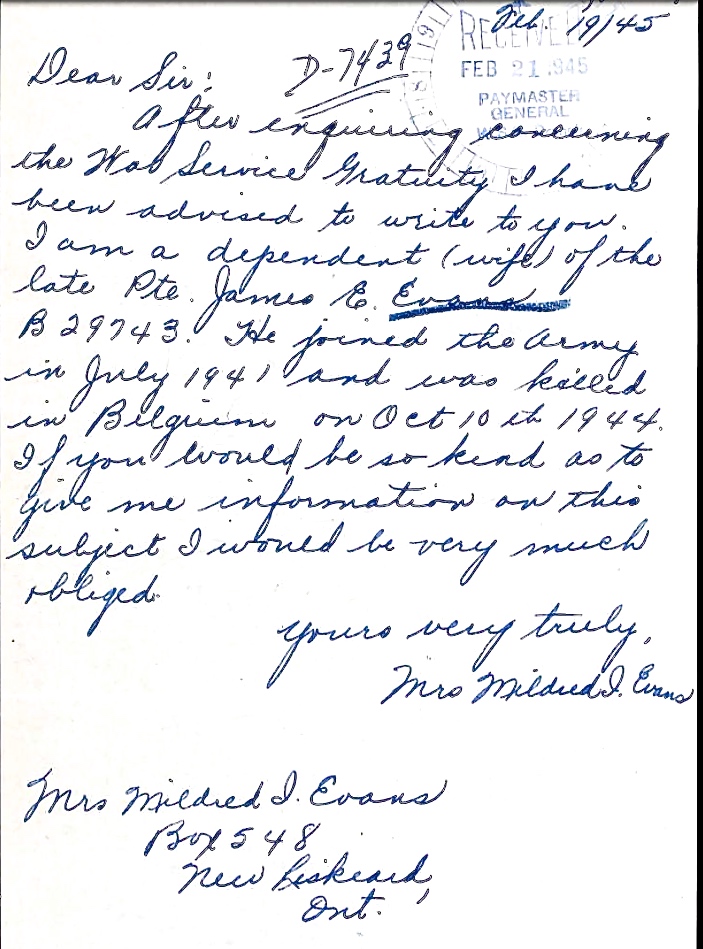 Feb. 19/45
RECEIVED
FEB 21 1945
PAYMASTER
GENERAL
D-7439
Dear Sir:
After enquiring concerning
the War Service Gratuity I have
been advised to write to you.
I am a dependent (wife) of the
late Pte. James E. Evans
B 29743. He joined the Army
in July 1941 and was killed
in Belgium on Oct 10th 1944.
If you would be so kind as to
give me information on this
subject I would be very much
obliged.
Yours very truly,
Mrs Mildred I. Evans
Mrs Mildred I. Evans
Box 548
New Liskeard,
Ont.